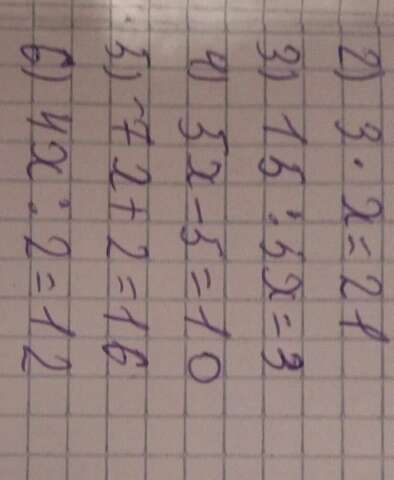 2) 3 · x = 21
3) 15 : 5x = 3
4) 5x - 5 = 10
5) 7x + 2 = 16
6) 4x : 2 = 12